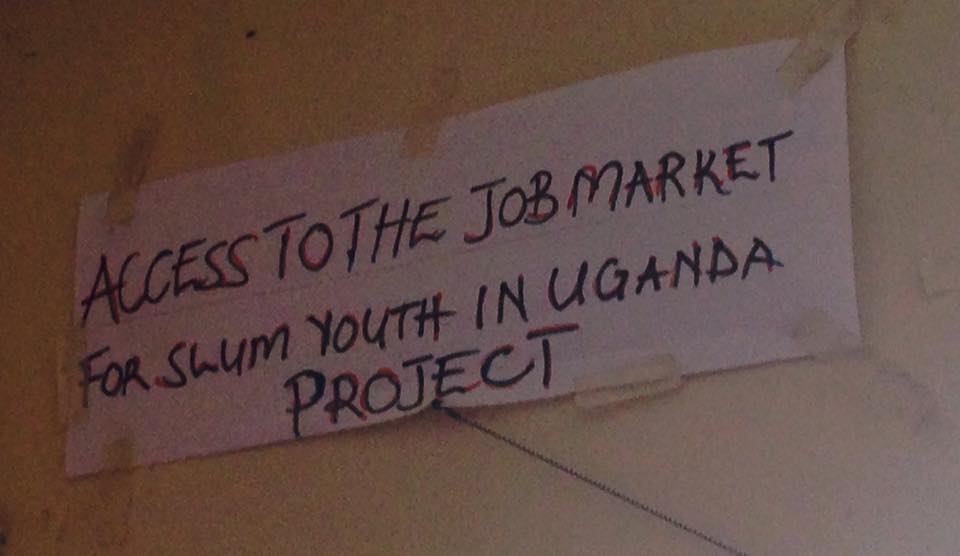 ACCESS TO THE JOB MARKET
FOR SLUM YOUTH IN UGANDA
PROJECT